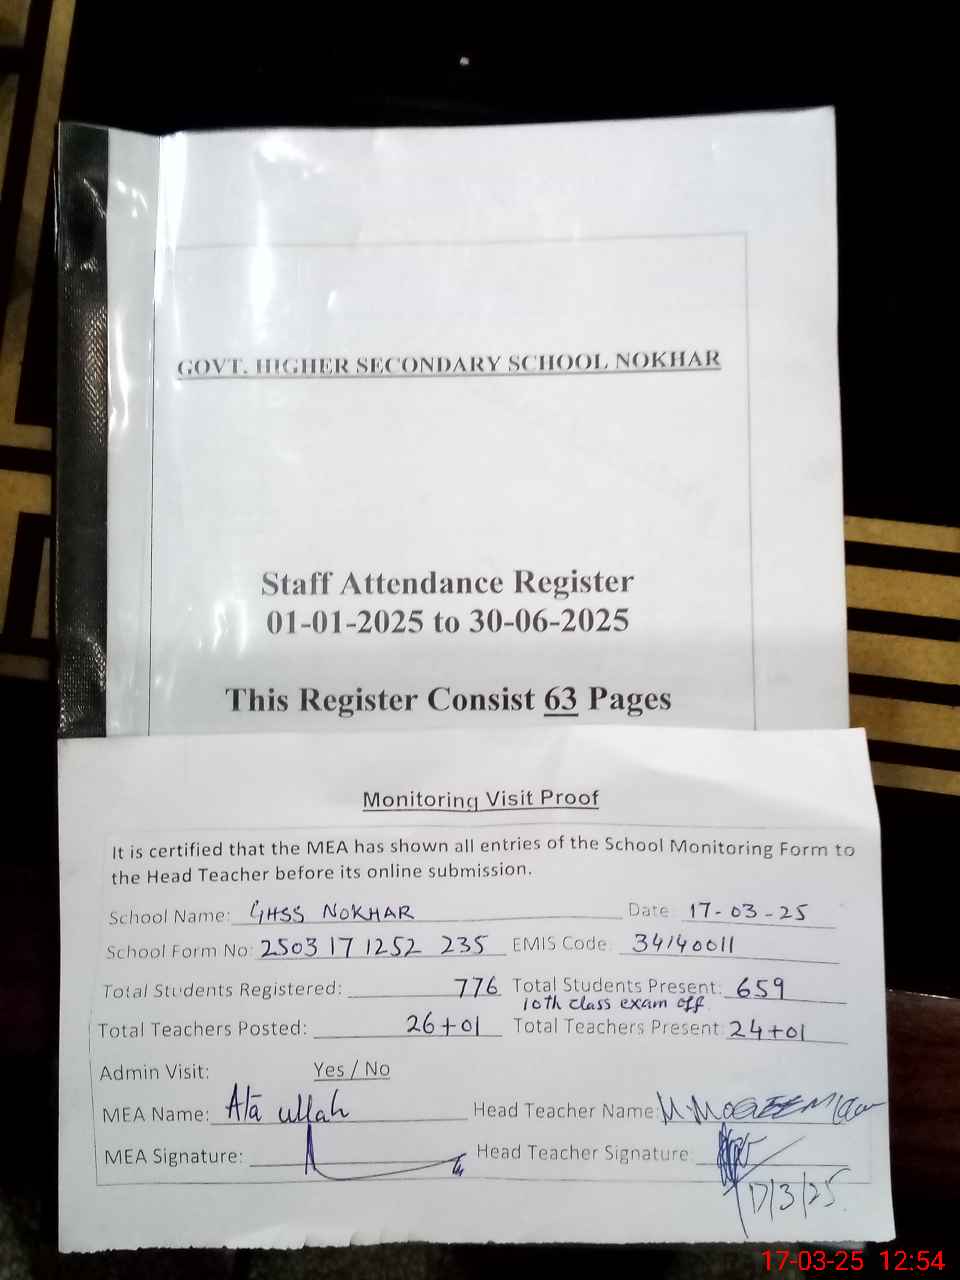 GOVT. HIGHER SECONDARY SCHOOL NOKHAR
Staff Attendance Register
01-01-2025 to 30-06-2025
This Register Consist 63 Pages
Monitoring Visit Proof
It is certified that the MEA has shown all entries of the School Monitoring Form to
the Head Teacher before its online submission.
School Name: GHSS NOKHAR Date: 17-03-25
School Form No: 2503 17 1252 235 EMIS Code: 34140011
Total Students Registered: 776 Total Students Present: 659
10th class exam off
Total Teachers Posted: 26+01 Total Teachers Present: 24+01
Admin Visit: Yes / No
MEA Name: Ata ullah Head Teacher Name:
MEA Signature: Head Teacher Signature:
17/3/25
17-03-25 12:54